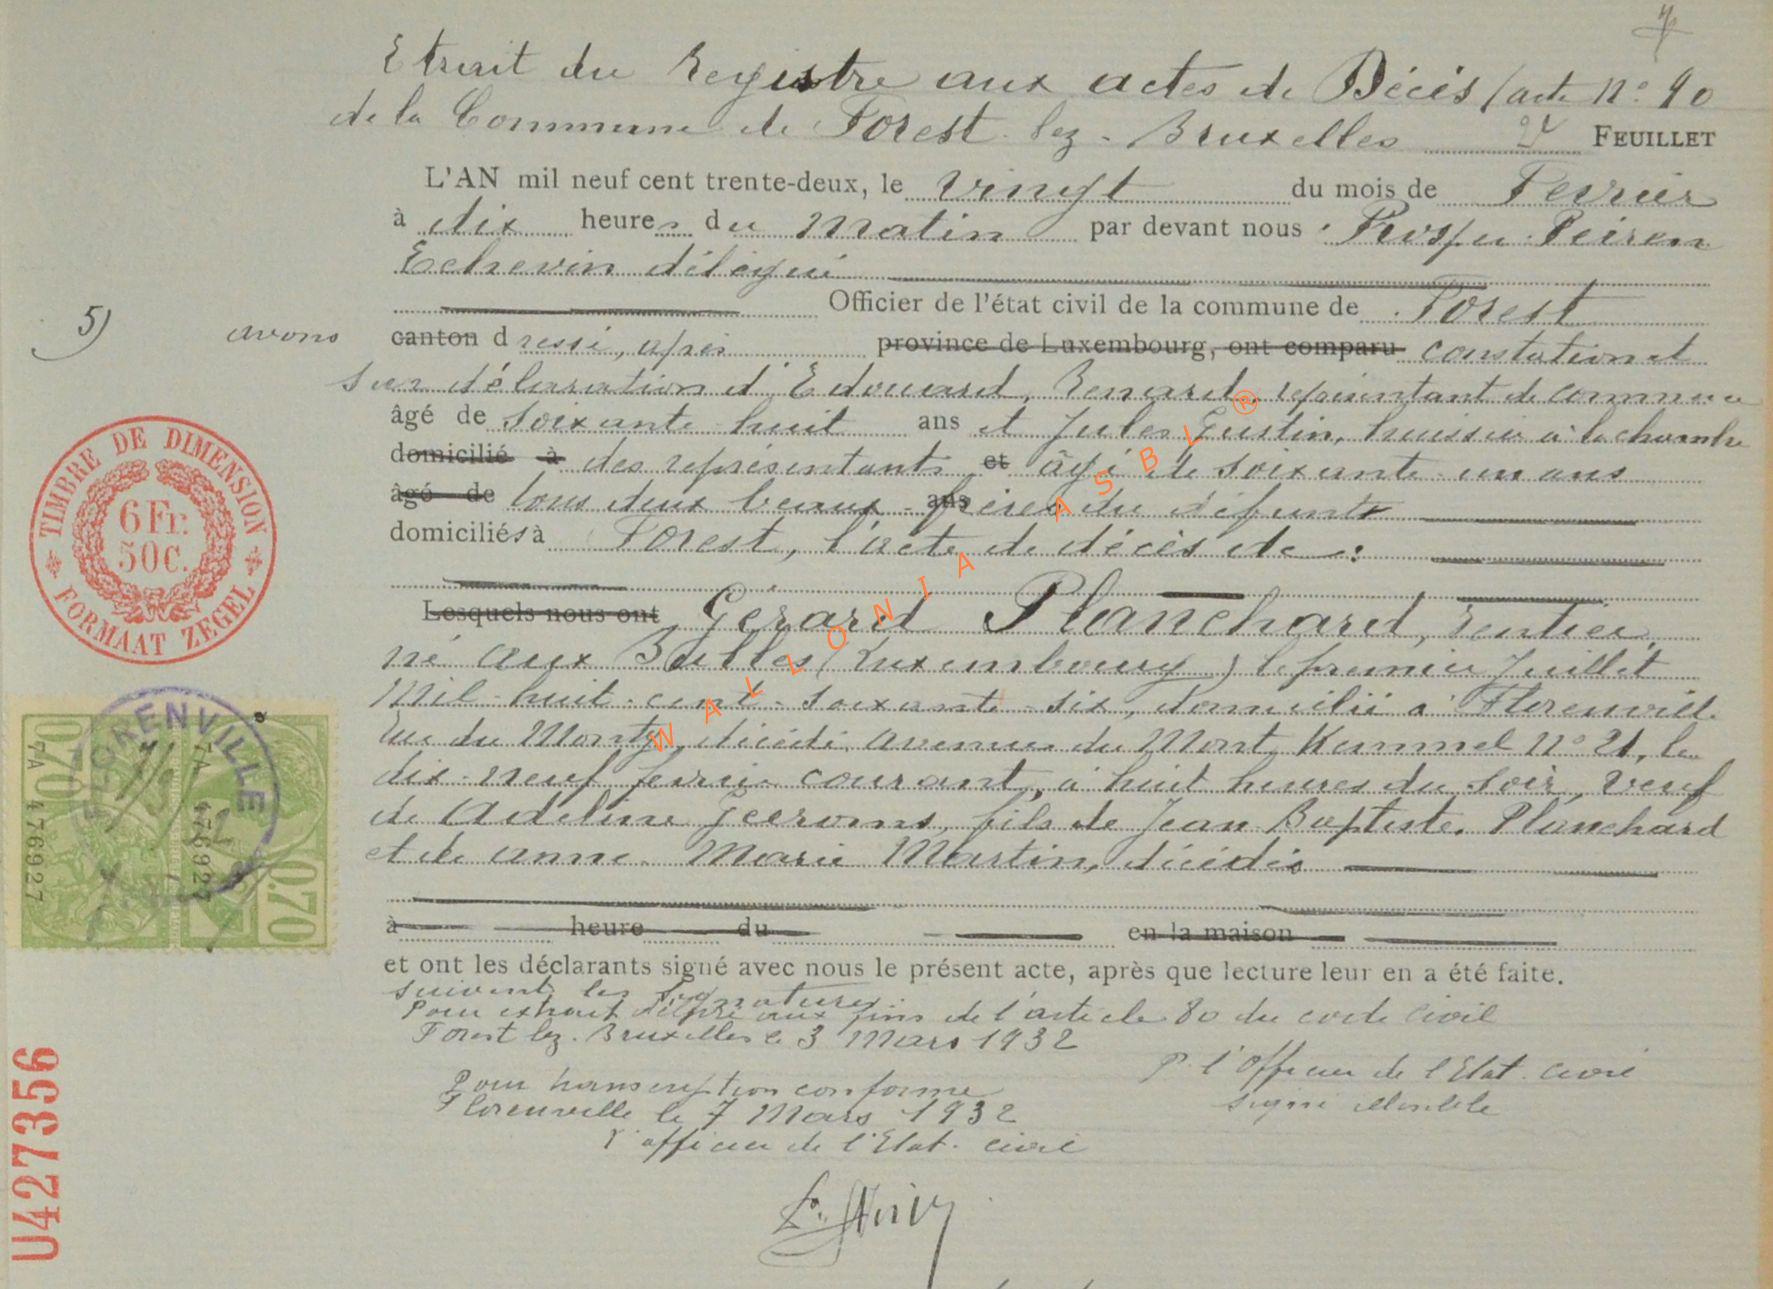 Extrait du Registre aux actes de Décès (acte N° 90
de la Commune de Forest-lez-Bruxelles FEUILLET
L'AN mil neuf cent trente-deux, le vingt du mois de Fevrier
à dix heures du Matin par devant nous Prosper Peiren
Echevin délégué
Officier de l'état civil de la commune de Forest
5) avons canton dressé, après province de Luxembourg, ont comparu constation et
sur déclaration d'Edouard, Renard, représentant de commerce
âgé de soixante huit ans et Jules Gustin, huissier à la chambre
domicilié à des représentants et âgé de soixante-un ans
âgé de tous deux beaux-frères ans du défunt
domiciliés à Forest, l'acte de décès de :
Lesquels nous ont Gérard Planchard, rentier,
né aux Bulles (Luxembourg) le premier Juillet
Mil-huit-cent-soixante-six, domicilié à Florenville
rue du Monty, décédé avenue du Mont Kemmel N° 21, le
dix-neuf fevrier courant, à huit heures du soir, veuf
de Adeline Jeeroms, fils de Jean Baptiste Planchard
et de Anne Marie Martin, décédés
à heure du en la maison
et ont les déclarants signé avec nous le présent acte, après que lecture leur en a été faite.
suivent les signatures
Pour extrait délivré aux fins de l'article 80 du code civil
Forest lez-Bruxelles le 3 Mars 1932
P. l'Officier de l'Etat civil
signé illisible
Pour transcription conforme
Florenville le 7 Mars 1932
l'officier de l'Etat civil
TIMBRE DE DIMENSION
6 Fr.
50 C.
FORMAAT ZEGEL
FLORENVILLE
0.70
7A 476927
7A 476927
0.70
U427356
WALLONIA ASBL ®